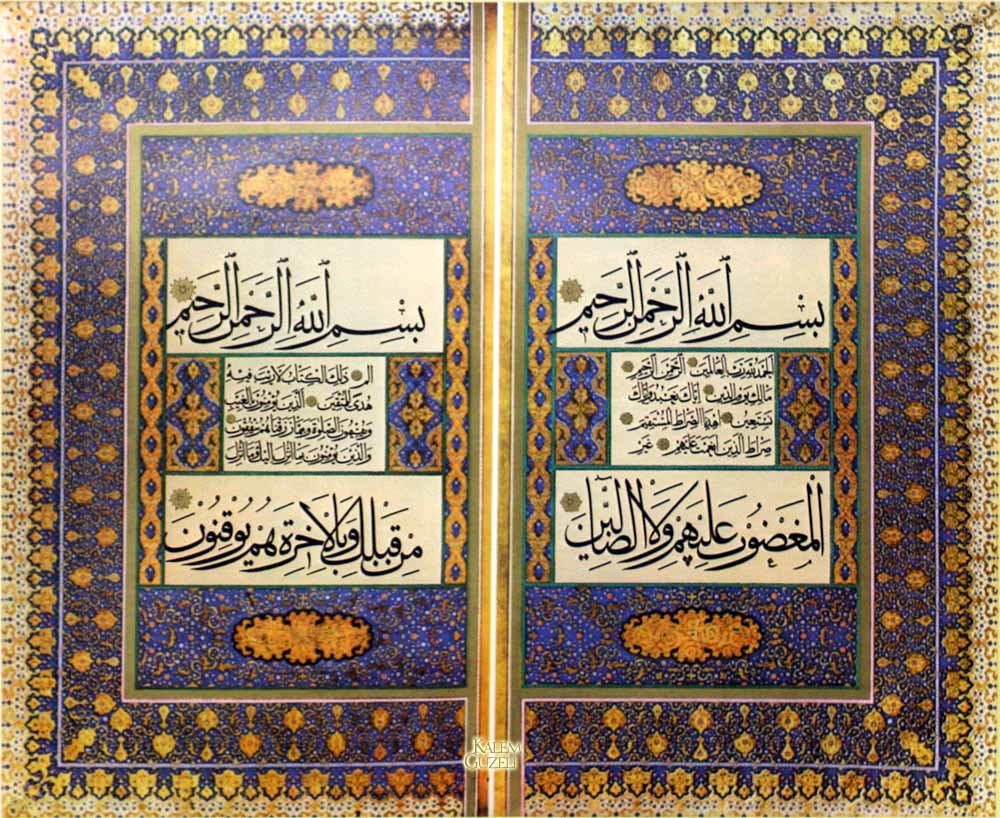 بِسْمِ اللَّهِ الرَّحْمٰنِ الرَّحِيمِ
الحمد لله رب العالمين الرحمن الرحيم
مالك يوم الدين إياك نعبد وإياك
نستعين اهدنا الصراط المستقيم
صراط الذين أنعمت عليهم غير
الْمَغْضُوبِ عَلَيْهِمْ وَلَا الضَّالِّينَ
بِسْمِ اللَّهِ الرَّحْمٰنِ الرَّحِيمِ
الم ذلك الكتاب لا ريب فيه
هدى للمتقين الذين يؤمنون بالغيب
ويقيمون الصلوة ومما رزقناهم ينفقون
والذين يؤمنون بما أنزل إليك وما أنزل
مِنْ قَبْلِكَ وَبِالْآخِرَةِ هُمْ يُوقِنُونَ
KALEM
GÜZELİ